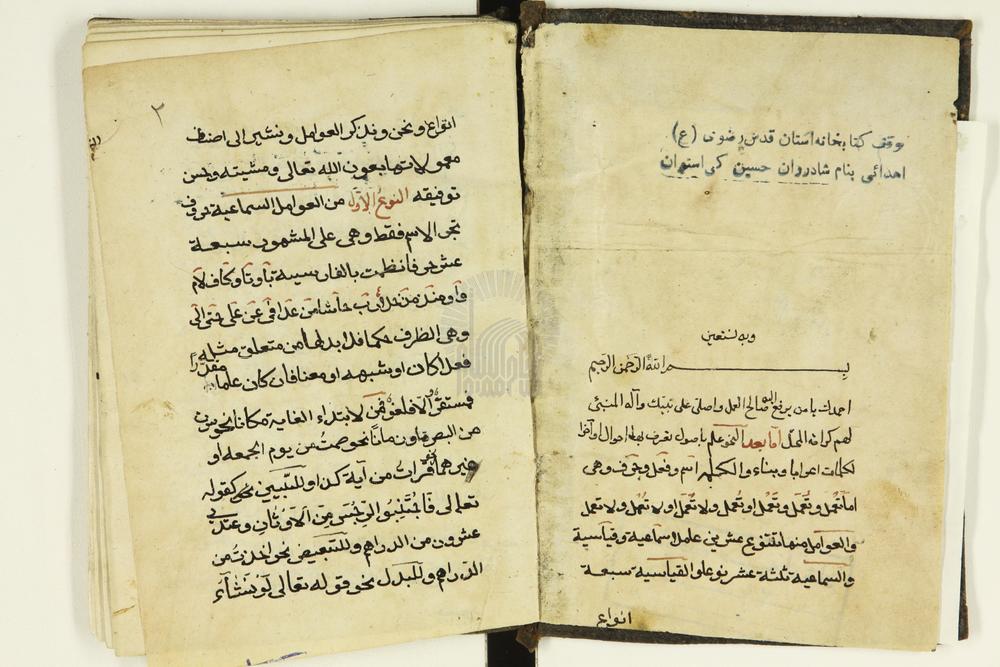 وقف کتابخانه آستان قدس رضوی (ع)
اهدائی بنام شادروان حسین کی استوان
وبه نستعین
بسم الله الرحمن الرحیم
احمدك یا من یرفع الیه صالح العمل واصلی علی نبیك وآله المنبئی
لهم کرامة المحل اما بعد النحو علم باصول تعرف بها احوال واخر
الکلمات اعرابا وبناء والکلمة اسم وفعل وحرف وهی
اما تعمل وتعمل وتعمل او تعمل ولا تعمل او لا تعمل ولا تعمل
والعوامل منها تتنوع عشرین عاملا سماعیة وقیاسیة
والسماعیة ثلثة عشر نوعا والقیاسیة سبعة
انواع
٢
انواع ونحن ونذکر العوامل ونشیر الی اصناف
معمولاتها بعون الله تعالی ومشیته وحسن
توفیقه النوع الاول من العوامل السماعیة حروف
تجر الاسم فقط وهی علی المشهور سبعة
عشر حرفا نظمت بالفارسیة باوتاوکاف لام
واو منذ مذ خلا رب حاشا من عدا فی عن علی حتی الی
وهی الظرف حکما فلابد لها من متعلق مثله
فعلا کان او شبهه او معناه فان کان علما مقدرا
فمستقر والا فلغو فمن لابتداء الغایة مکانا نحو سرت
من البصرة او زمانا نحو صمت من یوم الجمعة او
غیرهما نحو قرات من آیة کذا وللتبیین نحو کقوله
تعالی فاجتنبوا الرجس من الاوثان وعندی
عشرون من الدراهم وللتبعیض نحو اخذت من
الدراهم وللبدل نحو قوله تعالی لو نشاء